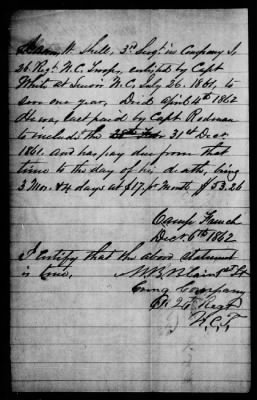 W. Shell, 3rd Sergt in Company
26 Regt N.C. Troops, enlisted by Capt
White at Lenoir N.C. July 26, 1861, to
serve one year, Died April 4th 1862
He was last paid by Capt Redman
to include the 31st Dec.
1861, and has pay due from that
time to the day of his death, being
3 Mos. & 4 days at $17. pr. Month, $53.26
Camp French
Dect. 6th 1862
I Certify that the above statement
is true,
N.B. Blair 1st Lt
Comg Company
26 Regt
N.C.T.